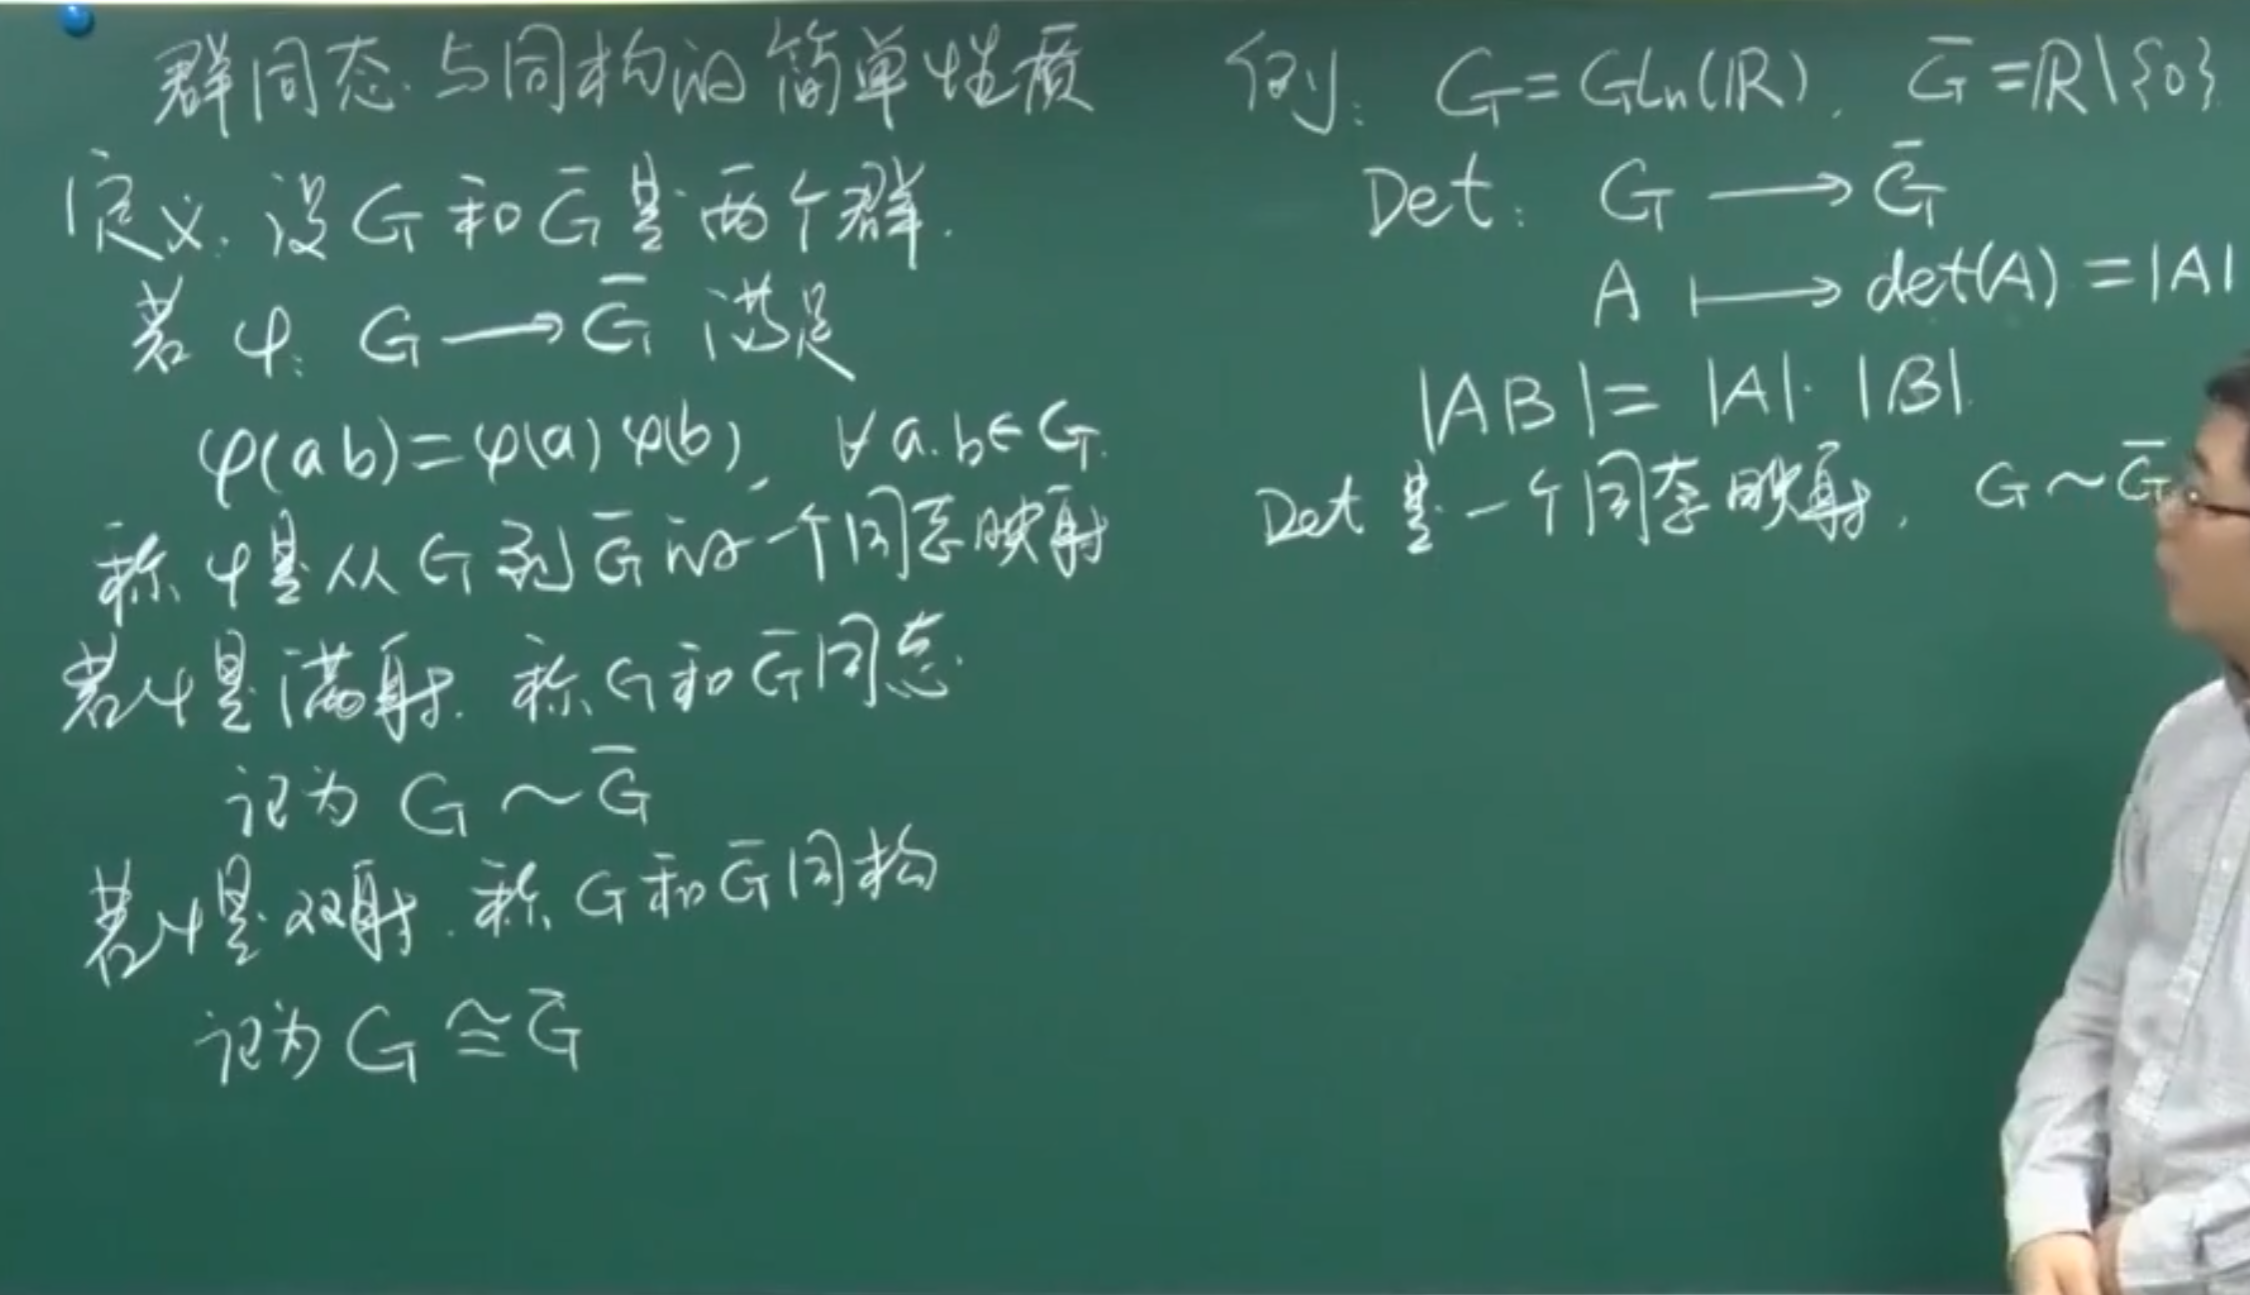 群同态与同构的简单性质
定义: 设G和Ḡ是两个群.
若 φ: G → Ḡ 满足
φ(ab)=φ(a)φ(b), ∀a.b∈G.
称φ是从G到Ḡ的一个同态映射
若φ是满射. 称G和Ḡ同态.
记为 G ~ Ḡ
若φ是双射. 称G和Ḡ同构
记为 G ≅ Ḡ
例: G=GLn(ℝ). Ḡ=ℝ\{0}
Det: G → Ḡ
A ↦ det(A) = |A|
|AB|= |A|·|B|.
Det 是一个同态映射. G~Ḡ